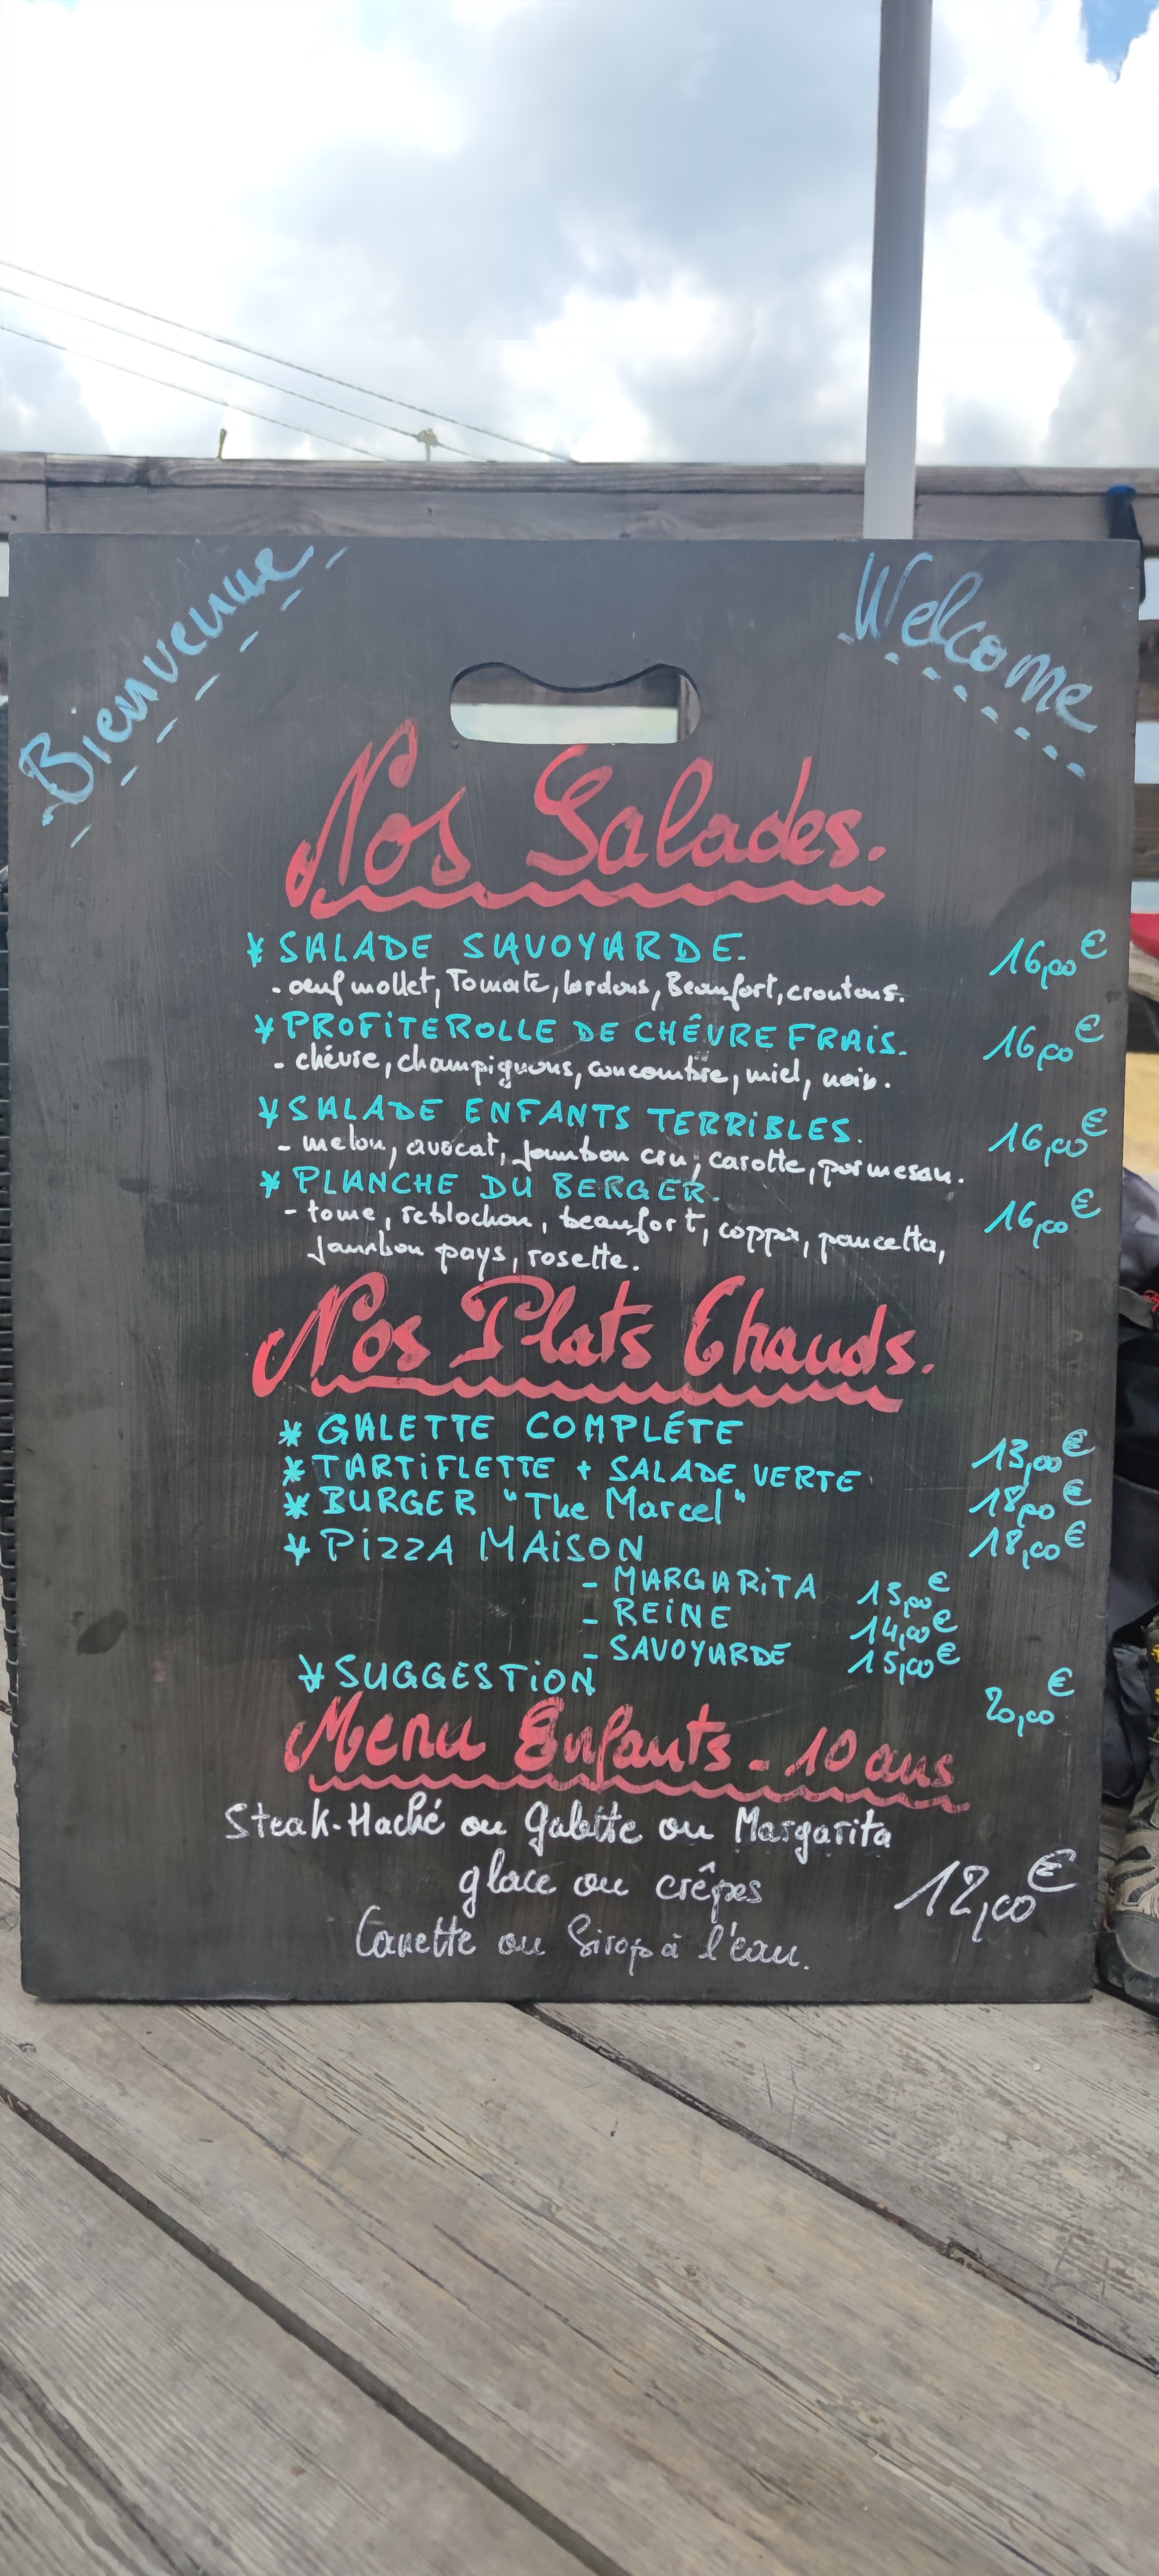 Bienvenue
Welcome
Nos Salades.
* SALADE SAVOYARDE. 16,00€
- oeuf mollet, Tomate, lardons, Beaufort, croutons.
* PROFiTEROLLE DE CHÊVRE FRAiS. 16,00€
- chévre, champignons, concombre, miel, noix.
* SALADE ENFANTS TERRiBLES. 16,00€
- melon, avocat, jambon cru, carotte, parmesan.
* PLANCHE DU BERGER. 16,00€
- tome, reblochon, beaufort, coppa, pancetta,
jambon pays, rosette.
Nos Plats Chauds.
* GALETTE COMPLÉTE 13,00€
* TARTiFLETTE + SALADE VERTE 18,00€
* BURGER "The Marcel" 18,00€
* PiZZA MAiSON
- MARGARiTA 13,00€
- REiNE 14,00€
- SAVOYARDE 15,00€
* SUGGESTiON 20,00€
Menu Enfants - 10 ans
Steak-Haché ou Galette ou Margarita
glace ou crêpes 12,00€
Canette ou Sirop à l'eau.